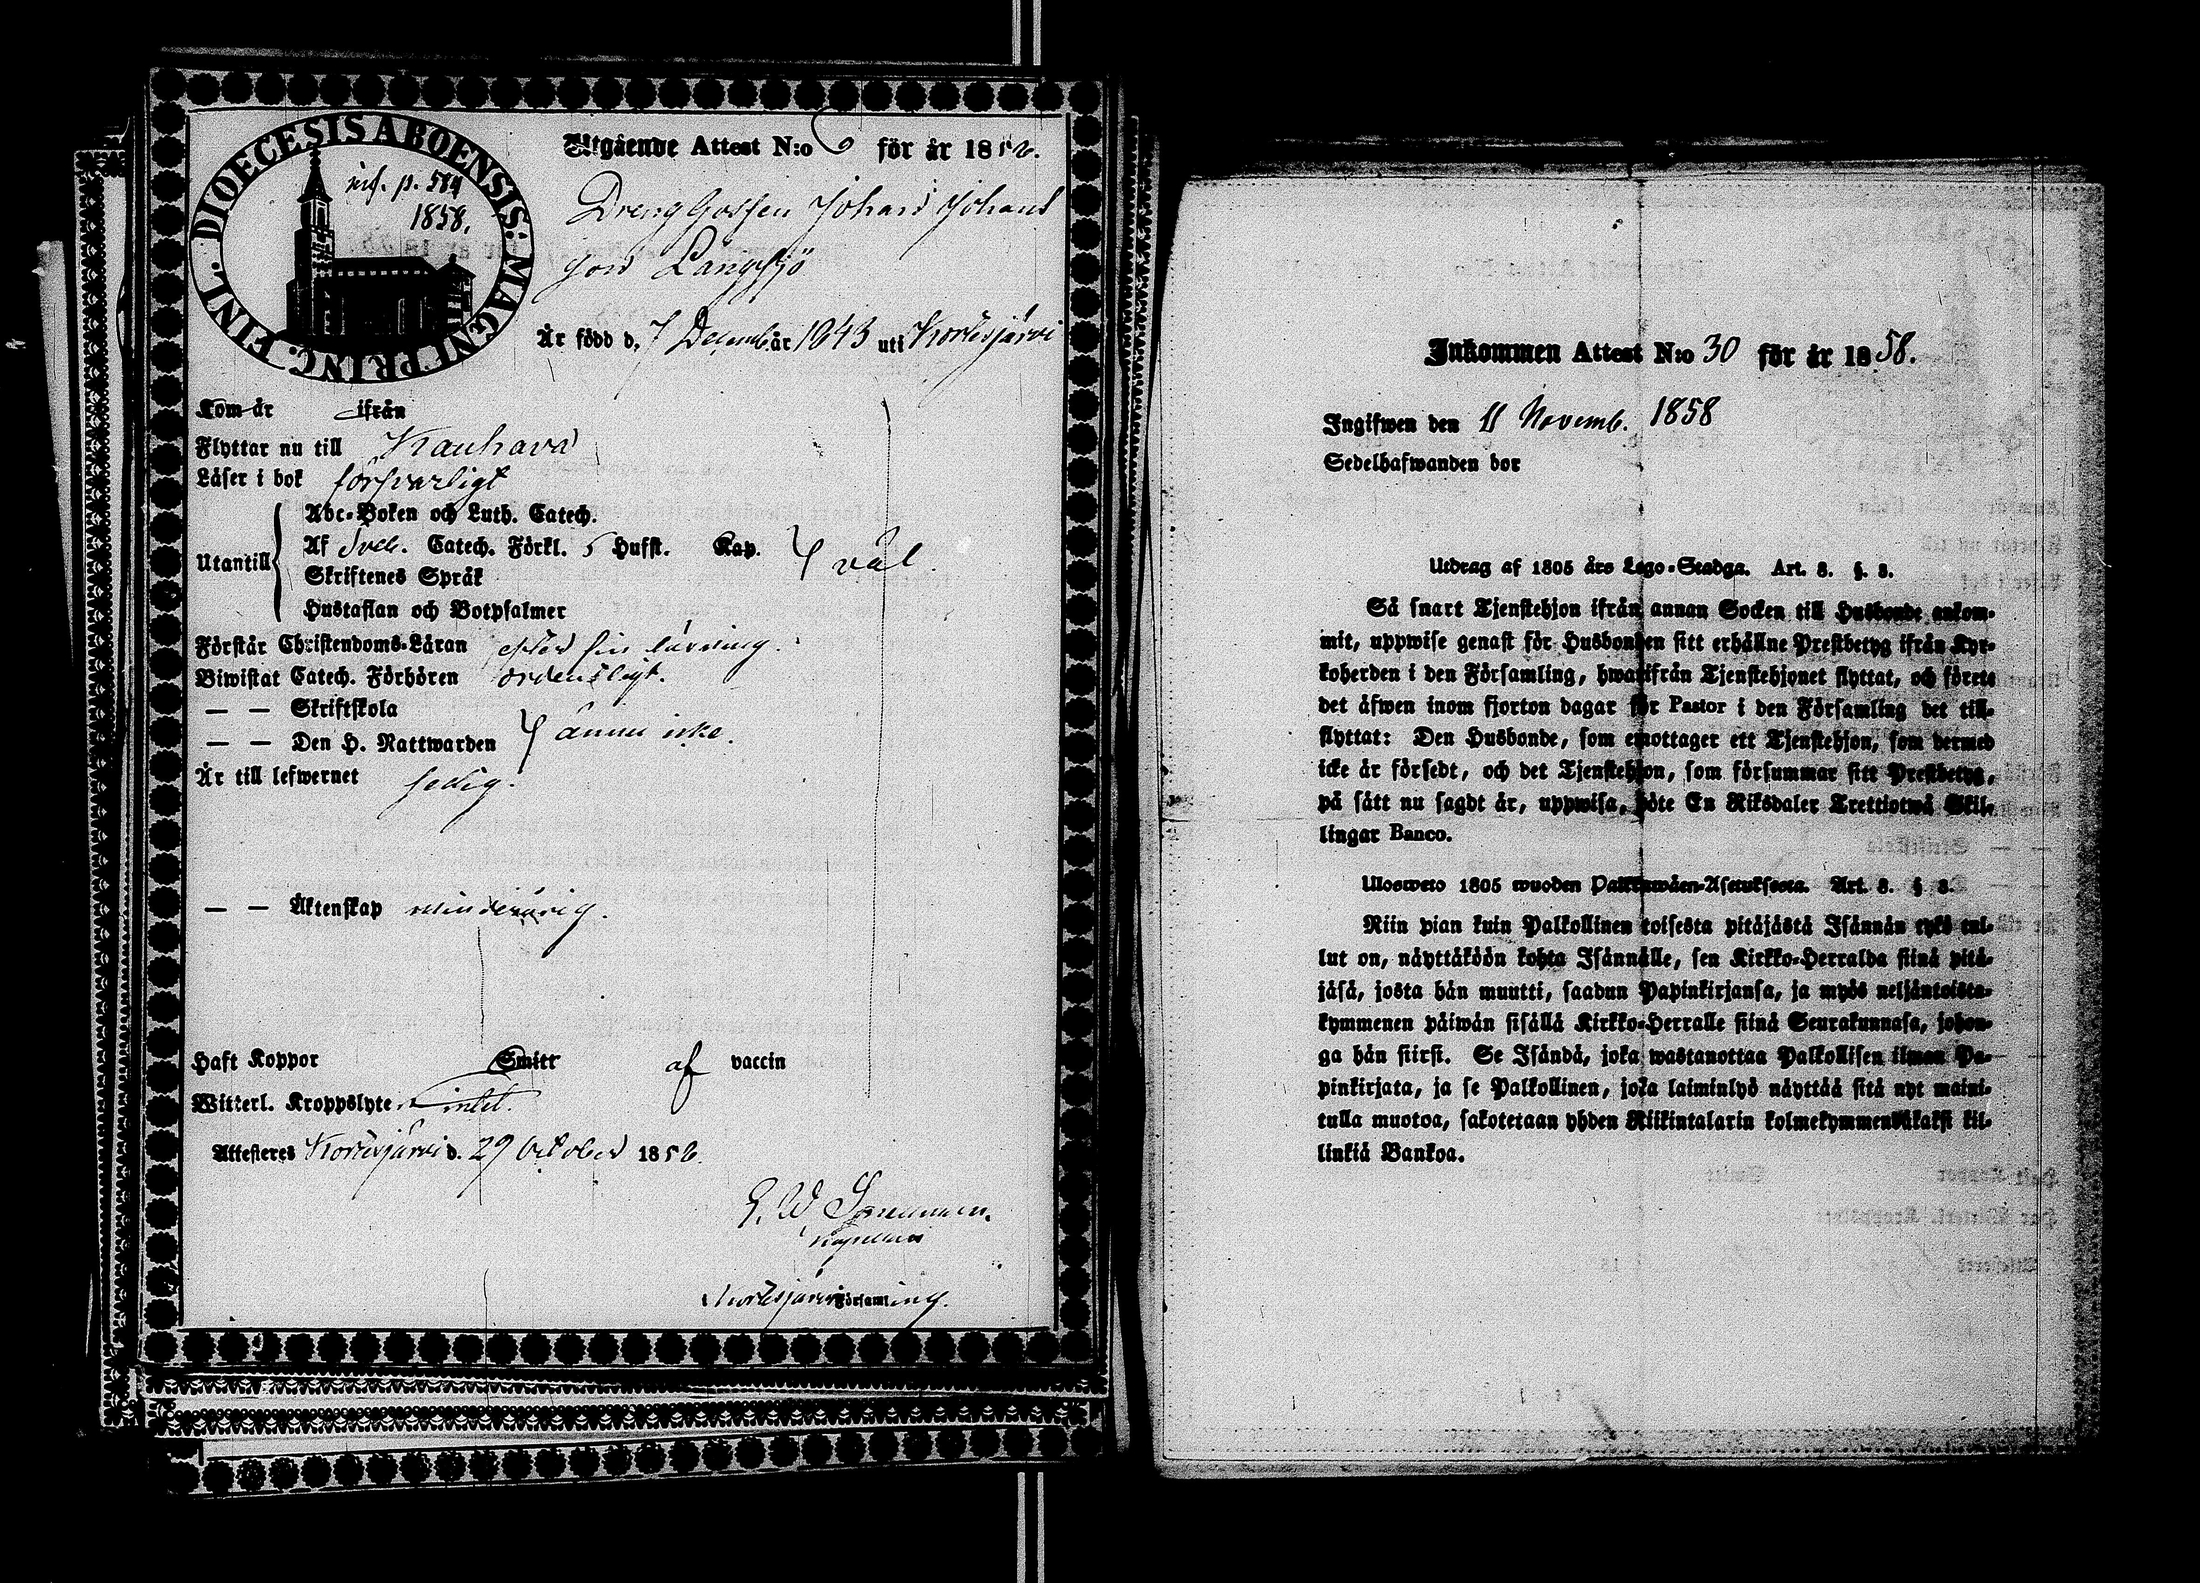 DIOECESIS ABOENSIS. MAGNI PRINC. FINL.
inf. p. 584
1858.
Utgående Attest N:o 6 för år 1856.
Dreng Gossen Johan Johans
son Långsjö
Är född d. 7 Decemb. år 1843 uti Kortesjärvi
Kom år ifrån
Flyttar nu till Kauhava
Läser i bok försvarligt
Utantill
Abc-Boken och Luth. Catech.
Af Sveb. Catech. Förkl. 5 Hufst. Kap.
Skriftenes Språk
Hustaflan och Botpsalmer
väl.
Förstår Christendoms-Läran efter sin lärning.
Biwistat Catech. Förhören ordentligt.
— — Skriftskola
— — Den H. Nattwarden
ännu icke.
Är till lefwernet sedig.
— — Äktenskap minderårig.
Haft Koppor Smitt af vaccin
Witterl. Kroppslyte intet.
Attesteres Kortesjärvi d. 29 October 1856.
E. W.
Kapellan
Kortesjärvi Församling.
Inkommen Attest N:o 30 för år 1858.
Ingifwen den 11 Novemb. 1858
Sedelhafwanden bor
Utdrag af 1805 års Lego-Stadga. Art. 8. §. 8.
Så snart Tjenstehjon ifrån annan Socken till Husbonde ankom-
mit, uppwise genast för Husbonden sitt erhållne Prestbetyg ifrån Kyr-
koherden i den Församling, hwarifrån Tjenstehjonet flyttat, och förete
det äfwen inom fjorton dagar för Pastor i den Församling det till-
flyttat: Den Husbonde, som emottager ett Tjenstehjon, som dermed
icke är försedt, och det Tjenstehjon, som försummar sitt Prestbetyg,
på sätt nu sagdt är, uppwisa, böte En Riksdaler Trettiotwå Skil-
lingar Banco.
Ulosweto 1805 wuoden Palkkawäen-Asetuksesta. Art. 8. § 8.
Niin pian kuin Palkollinen toisesta pitäjästä Isännän tykö tul-
lut on, näyttäköön kohta Isännälle, sen Kirkko-Herralda siinä pitä-
jäsä, josta hän muutti, saadun Papinkirjansa, ja myös neljäntoista-
kymmenen päiwän sisällä Kirkko-Herralle siinä Seurakunnasa, johon-
ga hän siirsi. Se Isändä, joka wastanottaa Palkollisen ilman Pa-
pinkirjata, ja se Palkollinen, joka laiminlyö näyttää sitä nyt maini-
tulla muotoa, sakotetaan yhden Riikintalarin kolmekymmendäkaksi kil-
linkiä Bankoa.